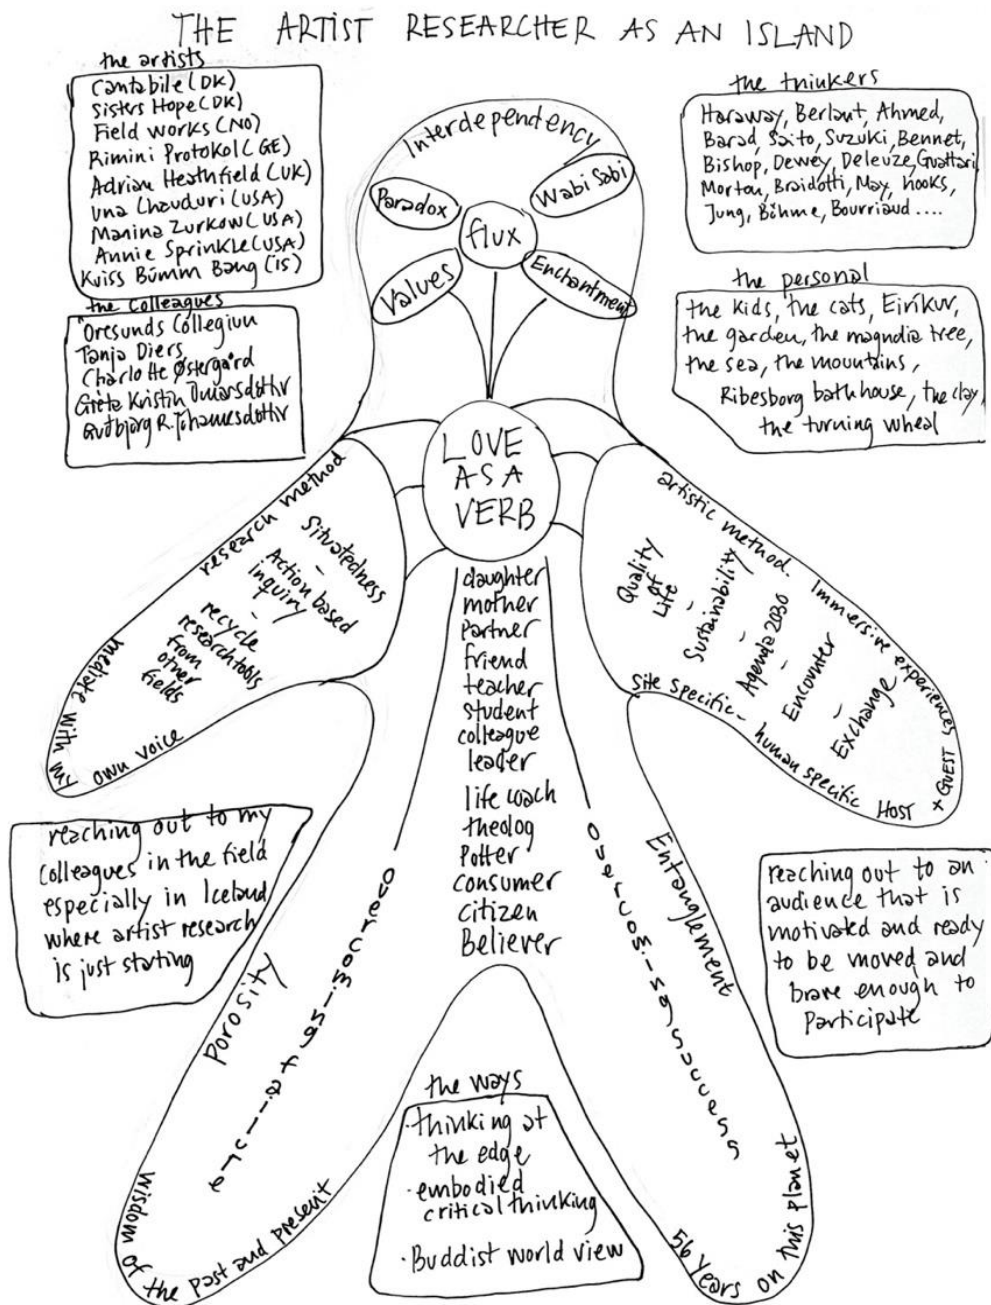 THE ARTIST RESEARCHER AS AN ISLAND
the artists
Cantabile (DK)
Sisters Hope (DK)
Field works (NO)
Rimini Protokol (GE)
Adrian Heathfield (UK)
Una Chauduri (USA)
Marina Zurkow (USA)
Annie Sprinkle (USA)
Kviss Búmm Bang (ÍS)
the colleagues
Öresunds Collegium
Tanja Diers
Charlotte Østergård
Gréta Kristín Ómarsdóttir
Guðbjörg R. Jóhannesdóttir
the thinkers
Haraway, Berlant, Ahmed,
Barad, Saito, Suzuki, Bennet,
Bishop, Dewey, Deleuze, Guattari
Morton, Braidotti, May, hooks,
Jung, Böhme, Bourriaud ....
the personal
the kids, the cats, Eiríkur,
the garden, the magnolia tree,
the sea, the mountains,
Ribesborg bathhouse, the clay
the turning wheal
Interdependency
Paradox
Wabi Sabi
flux
Values
Enchantment
LOVE
AS A
VERB
research method
Situatedness
-
Action based
inquiry
-
recycle
research tools
from
other
fields
mediate with my own voice
artistic method. Immersive experiences
Quality
of
Life
-
Sustainability
-
Agenda 2030
-
Encounter
-
Exchange
Site specific - human specific HOST + GUEST
daughter
mother
partner
friend
teacher
student
colleague
leader
life coach
theolog
Potter
consumer
citizen
Believer
reaching out to my
colleagues in the field
especially in Iceland
where artist research
is just starting
reaching out to an
audience that is
motivated and ready
to be moved and
brave enough to
participate
Porosity
overcoming failure
Entanglement
overcoming success
wisdom of the past and present
56 years on this planet
the ways
· thinking at
the edge
· embodied
critical thinking
· Buddist world view